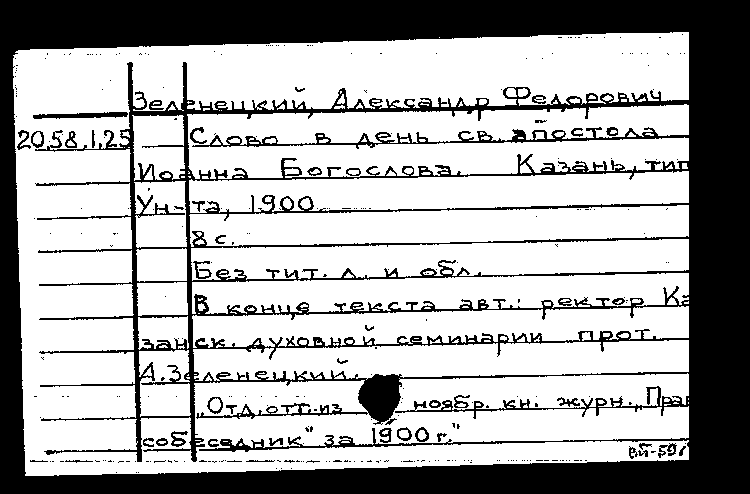 Зеленецкий, Александр Федорович
20.58.1.25 Слово в день св. апостола
Иоанна Богослова. Казань, тип
Ун-та, 1900.
8 с.
Без тит. л. и обл.
В конце текста авт.: ректор Ка
занск. духовной семинарии прот.
А. Зеленецкий.
„Отд. отт. из ноябр. кн. журн. „Прав
собеседник" за 1900 г."